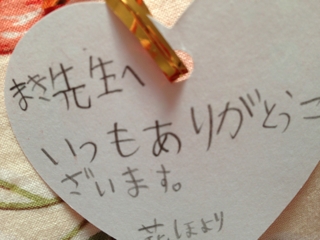 まき先生へ
いつもありがとうご
ざいます。
花ほより